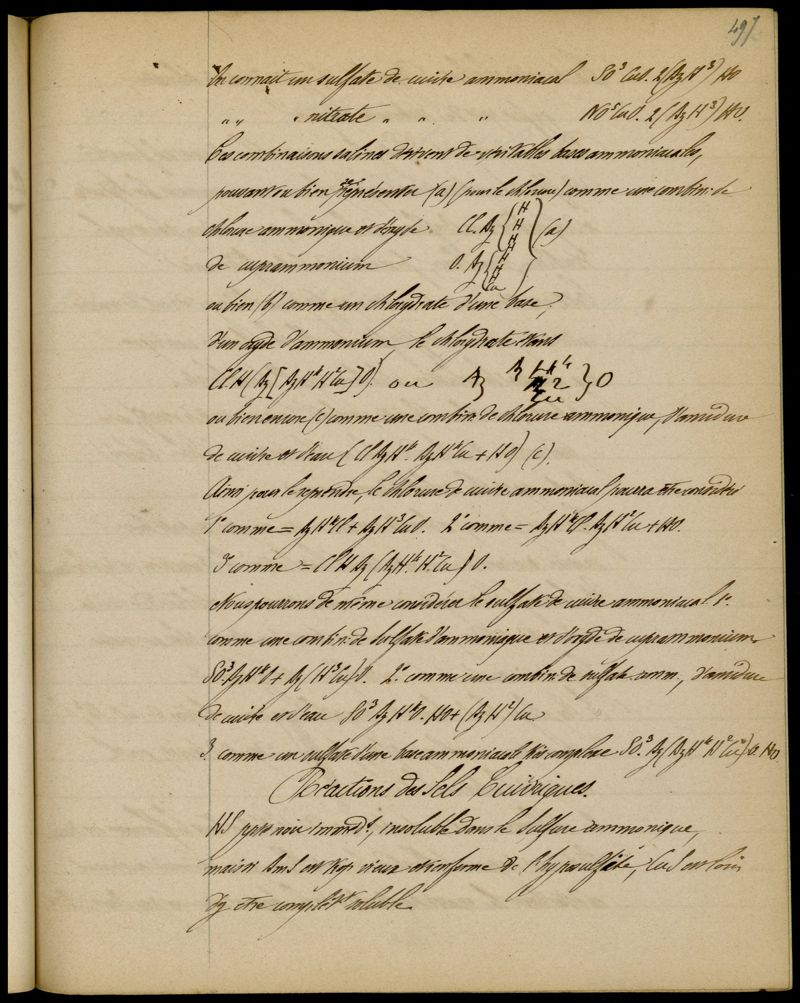 497
On connait un sulfate de cuivre ammoniacal SO³CuO. 2(AzH³)HO
„ „ „ nitrate „ „ „ NO⁵CuO. 2(AzH³)HO.
Ces combinaisons salines dérivent de véritables bases ammoniacales,
pouvant ou bien représenter (a) (pour le chlorure) comme une combin: de
chlorure ammonique et d'oxyde Cl. Az { H H H } (a)
de cuprammonium O. Az { H H Cu }
ou bien (b) comme un chlorydrate d'une base,
d'un oxyde d'ammonium, le chlorydrate étant
ClH (Az[AzH⁴H²Cu]O). ou Az AzH⁴ H2 Cu } O
ou bien encore (c) comme une combin: de chlorure ammonique, d'amidure
de cuivre et d'eau (ClAzH⁴. AzH²Cu + HO) (c).
Ainsi pour le reprendre, le chlorure de cuivre ammoniacal pourra être considéré
1° comme = AzH⁴Cl + AzH³CuO. 2° comme = AzH⁴Cl. AzH²Cu + HO.
3° comme = ClH Az(AzH⁴. H²Cu) O.
Nous pouvons de même considérer le sulfate de cuivre ammoniacal 1°
comme une combin: de sulfate d'ammoniaque et d'oxyde de cuprammonium
SO³AzH⁴O + Az(H³Cu)O. 2° comme une combin: de sulfate amm., d'amidure
de cuivre et d'eau SO³AzH⁴O. HO + (AzH²)Cu
3. comme un sulfate d'une base ammoniacale très complexe SO³. Az(AzH⁴H²Cu)O. HO
Réactions des Sels Cuivriques.
HS ppté noir immédt, insoluble dans le sulfure ammonique,
mais si AmS est trop vieux et renferme de l'hyposulfite, CuS est loin
d'y être complètt soluble